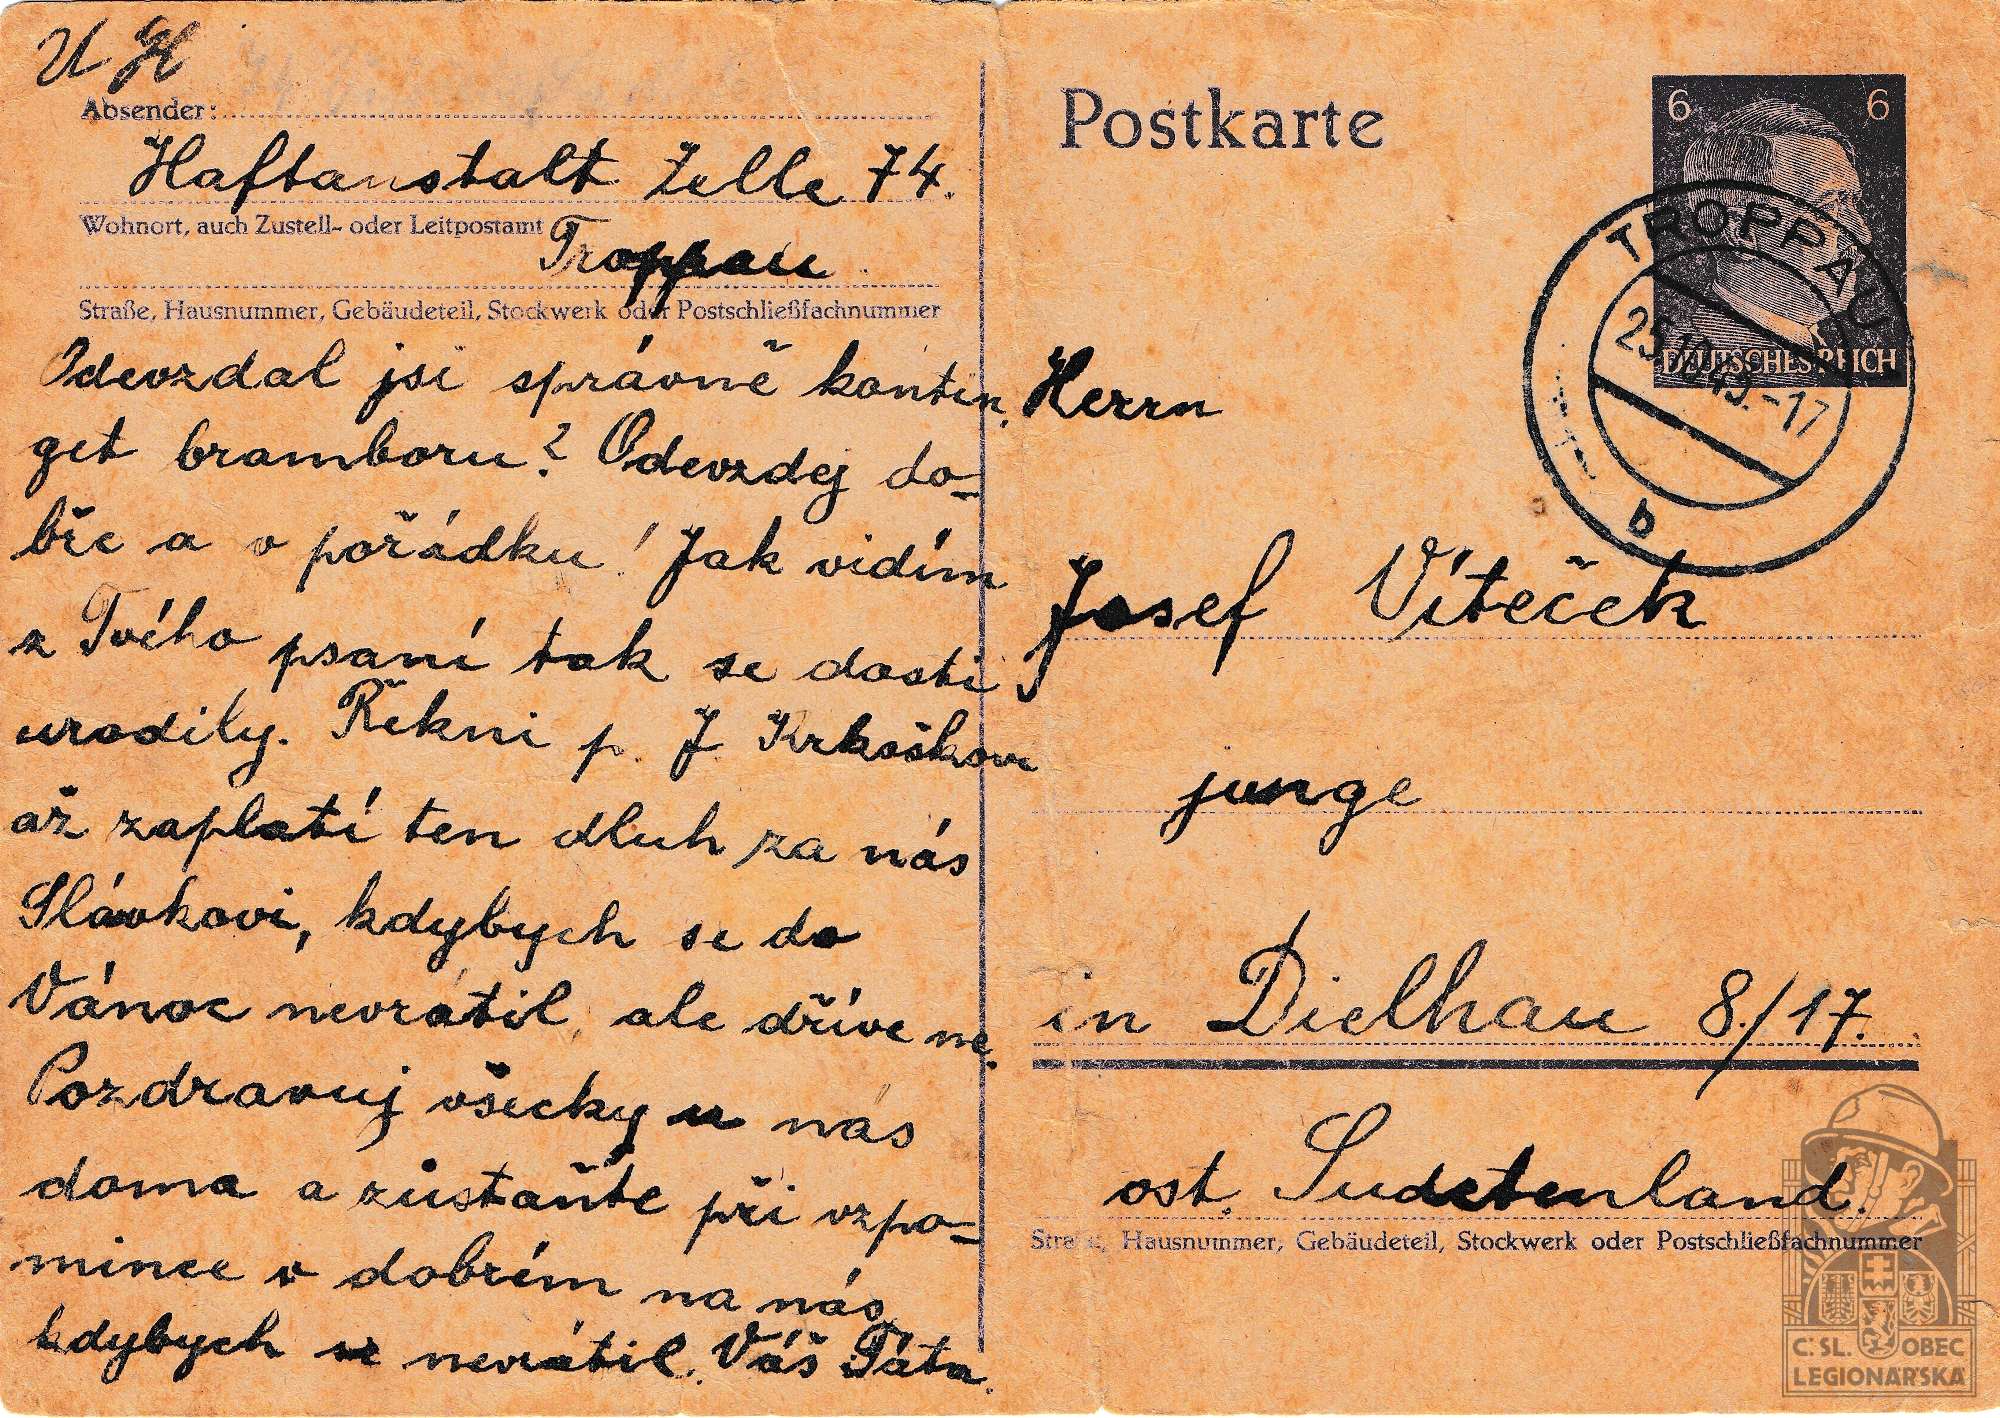 U H
Absender:
Haftanstalt Zelle 74.
Wohnort, auch Zustell- oder Leitpostamt
Troppau
Straße, Hausnummer, Gebäudeteil, Stockwerk oder Postschließfachnummer
Odevzdal jsi správně kontin
get bramboru? Odevzdej do-
bře a v pořádku! Jak vidím
z Tvého psaní tak se dosti
urodily. Řekni p. J. Krkoškovi
až zaplatí ten dluh za nás
Slávkovi, kdybych se do
Vánoc nevrátil, ale dříve ne.
Pozdravuj všecky u nas
doma a zůstaňte při vzpo-
mince v dobrém na nás,
kdybych se nevrátil. Váš Táta.
Postkarte
6 6
DEUTSCHES REICH
TROPPAU
25.10.43.-17
b
Herrn
Josef Víteček
junge
in Dielhau 8./17.
ost. Sudetenland.
Straße, Hausnummer, Gebäudeteil, Stockwerk oder Postschließfachnummer
ČSL. OBEC
LEGIONÁŘSKÁ